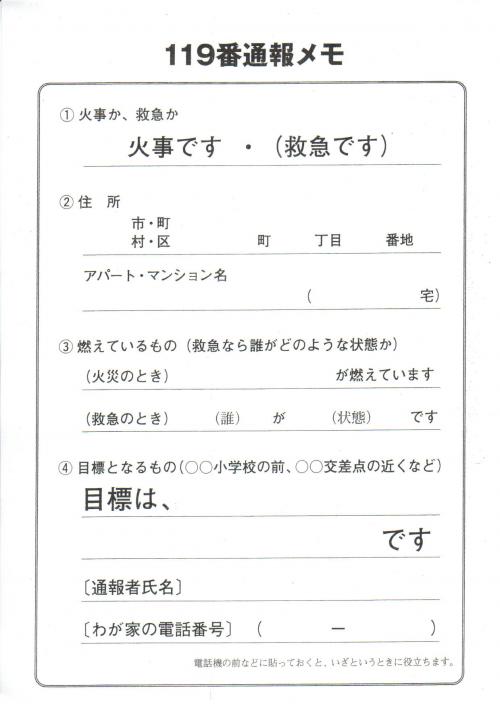 119番通報メモ
① 火事か、救急か
火事です ・ (救急です)
② 住 所
市・町
村・区 町 丁目 番地
アパート・マンション名
( 宅)
③ 燃えているもの(救急なら誰がどのような状態か)
(火災のとき) が燃えています
(救急のとき) (誰) が (状態) です
④ 目標となるもの(○○小学校の前、○○交差点の近くなど)
目標は、
です
〔通報者氏名〕
〔わが家の電話番号〕 ( ー )
電話機の前などに貼っておくと、いざというときに役立ちます。